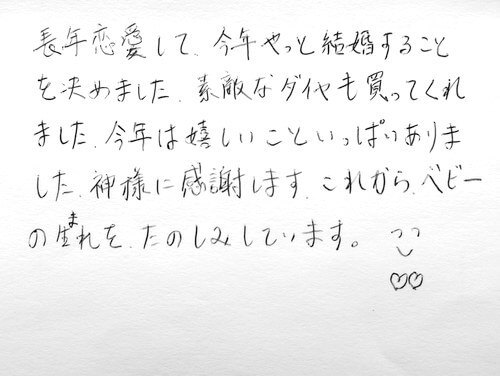 長年恋愛して、今年やっと結婚すること
を決めました、素敵なダイヤも買ってくれ
ました、今年は嬉しいこといっぱいありま
した、神様に感謝します、これから、ベビー
の生まれを、たのしみしています。